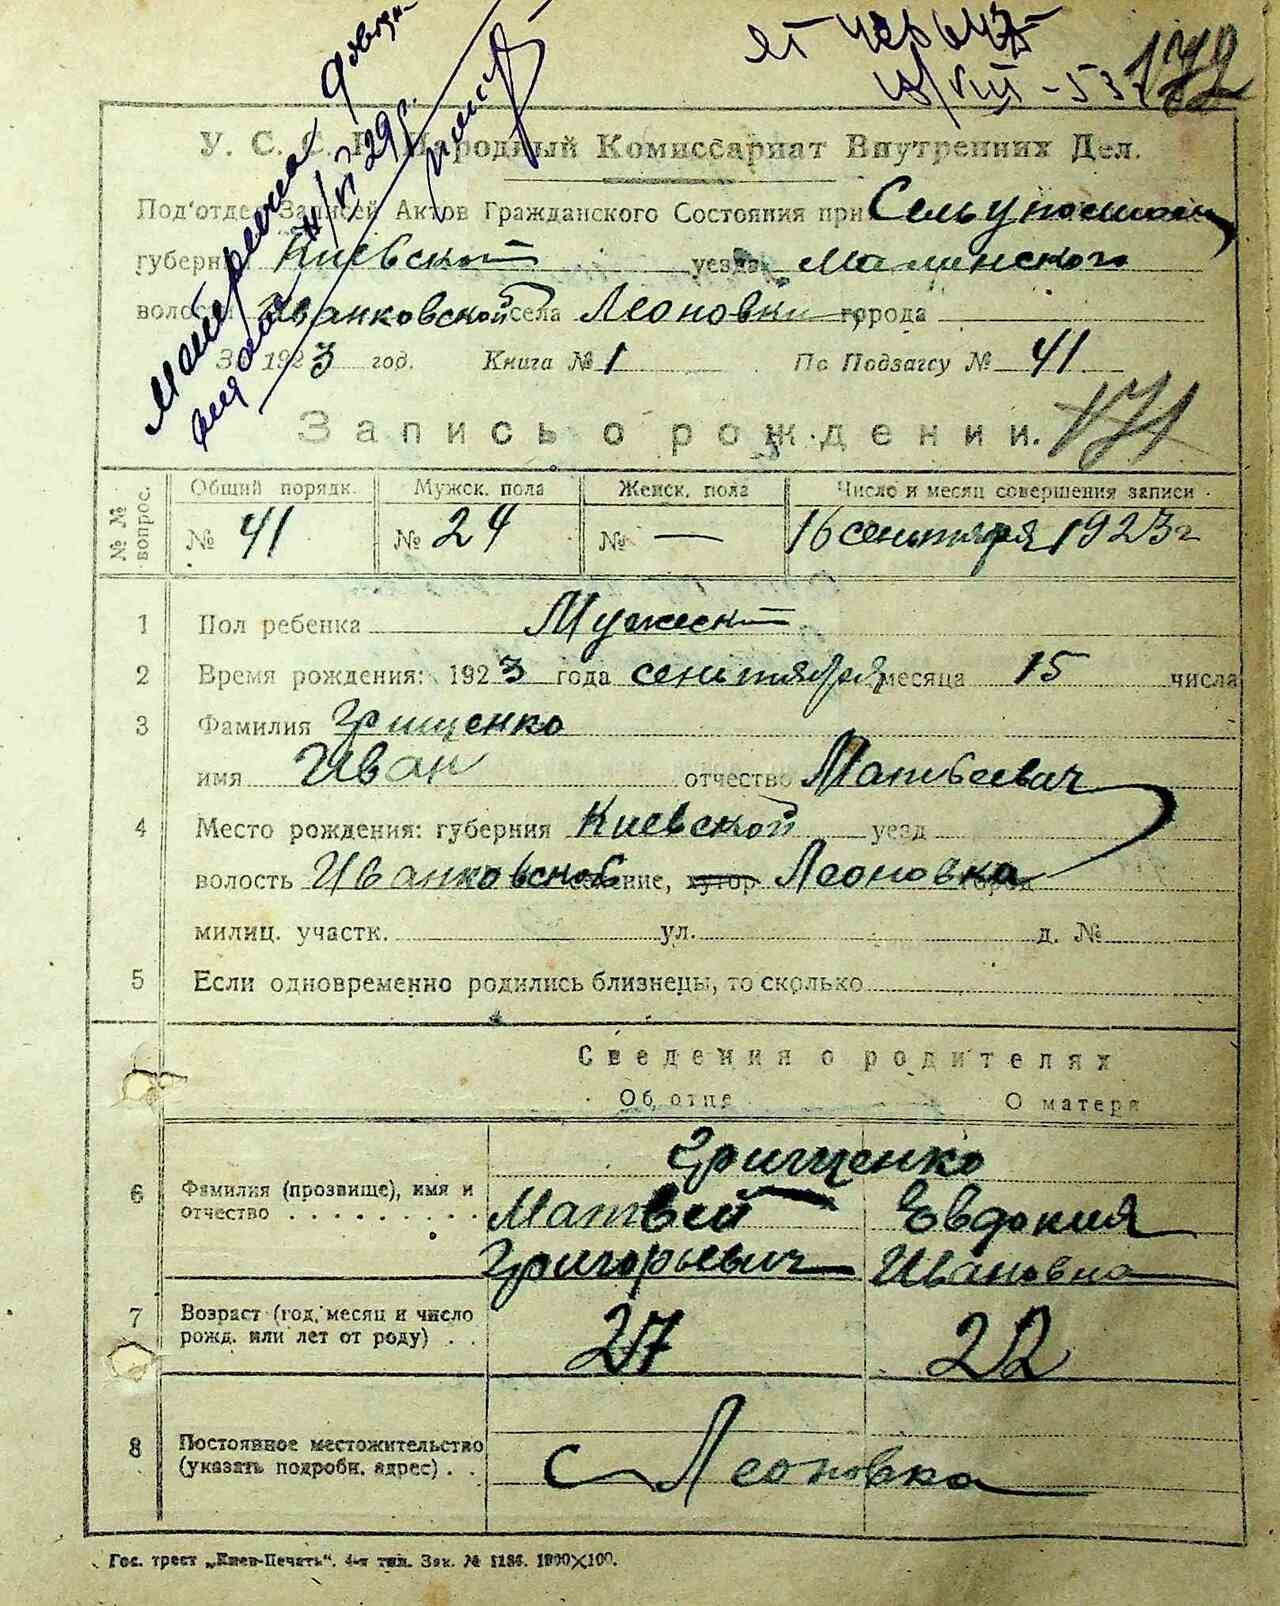 172
У. С. С. Р. Народный Комиссариат Внутренних Дел.
Под'отдел Записей Актов Гражданского Состояния при
губернии Киевской уезда Малинского
волости Иванковской села Леоновки города
За 1923 год. Книга № 1 По Подзагсу № 41
171
Запись о рождении.
№ № вопрос. Общий порядк. Мужск. пола Женск. пола Число и месяц совершения записи
№ 41 № 24 № — 16 сентября 1923 г
1 Пол ребенка Мужеск
2 Время рождения: 1923 года сентября месяца 15 числа
3 Фамилия Грищенко
имя Иван отчество Матвеевич
4 Место рождения: губерния Киевской уезд
волость Иванковской селение, хутор Леоновка город
милиц. участк. ул. д. №
5 Если одновременно родились близнецы, то сколько
Сведения о родителях
Об отце О матери
Грищенко
6 Фамилия (прозвище), имя и отчество Матвей Евдокия
Григорьевич Ивановна
7 Возраст (год, месяц и число рожд. или лет от роду) 27 22
8 Постоянное местожительство (указать подробн. адрес) с Леоновка
Гос. трест „Киев-Печать“. 4-я тип. Зак. № 1186. 1000×100.